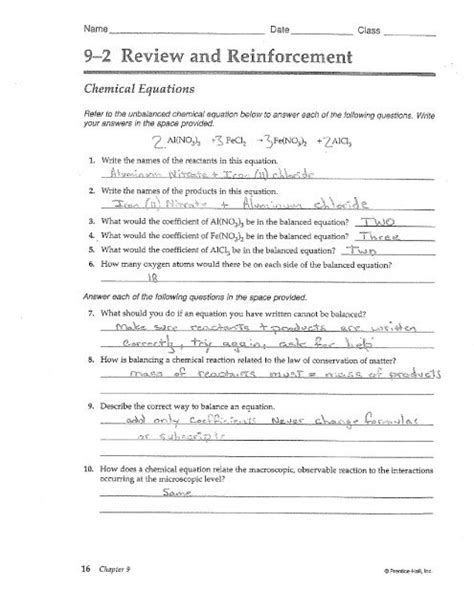 Name Date Class
9–2 Review and Reinforcement
Chemical Equations
Refer to the unbalanced chemical equation below to answer each of the following questions. Write
your answers in the space provided.
2 Al(NO₃)₃ + 3 FeCl₂ → 3 Fe(NO₃)₂ + 2 AlCl₃
1. Write the names of the reactants in this equation.
Aluminum Nitrate + Iron (II) chloride
2. Write the names of the products in this equation.
Iron (II) Nitrate + Aluminum chloride
3. What would the coefficient of Al(NO₃)₃ be in the balanced equation? Two
4. What would the coefficient of Fe(NO₃)₂ be in the balanced equation? Three
5. What would the coefficient of AlCl₃ be in the balanced equation? Two
6. How many oxygen atoms would there be on each side of the balanced equation?
18
Answer each of the following questions in the space provided.
7. What should you do if an equation you have written cannot be balanced?
Make sure reactants + products are written
correctly, try again, ask for help
8. How is balancing a chemical reaction related to the law of conservation of matter?
mass of reactants must = mass of products
9. Describe the correct way to balance an equation.
add only coefficients Never change formulas
or subscripts
10. How does a chemical equation relate the macroscopic, observable reaction to the interactions
occurring at the microscopic level?
Same
16 Chapter 9 © Prentice-Hall, Inc.